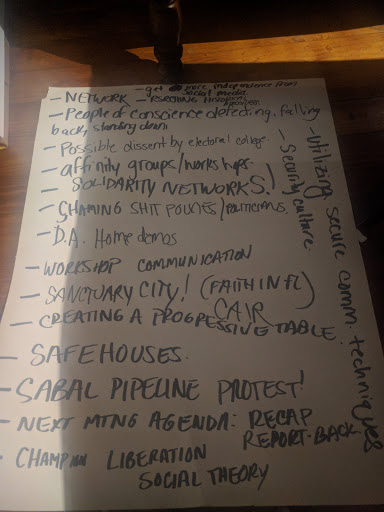 - get more independence from
social media
- NETWORK - RESEARCHING
- People of conscience defecting, falling
back, standing down
- Possible dissent by electoral college.
- affinity groups/workshops.
- SOLIDARITY NETWORKS!
- SHAMING SHIT POLICIES/POLITICIANS.
- D.A. Home demos
- WORKSHOP COMMUNICATION
- SANCTUARY CITY! (FAITH IN FL)
CAIR
- CREATING A PROGRESSIVE TABLE.
- SAFEHOUSES.
- SABAL PIPELINE PROTEST!
- NEXT MTNG AGENDA: RECAP
REPORT-BACK
- CHAMPION LIBERATION
SOCIAL THEORY
- Utilizing secure comm. techniques
- Security culture.